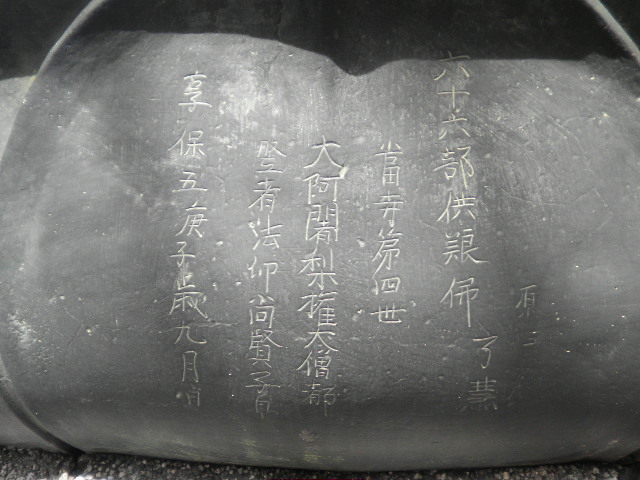 六十六部供粮佛
了慧
當寺第四世
大阿闍梨権大僧都
竪者法印尚賢
享保五庚子歳九月日